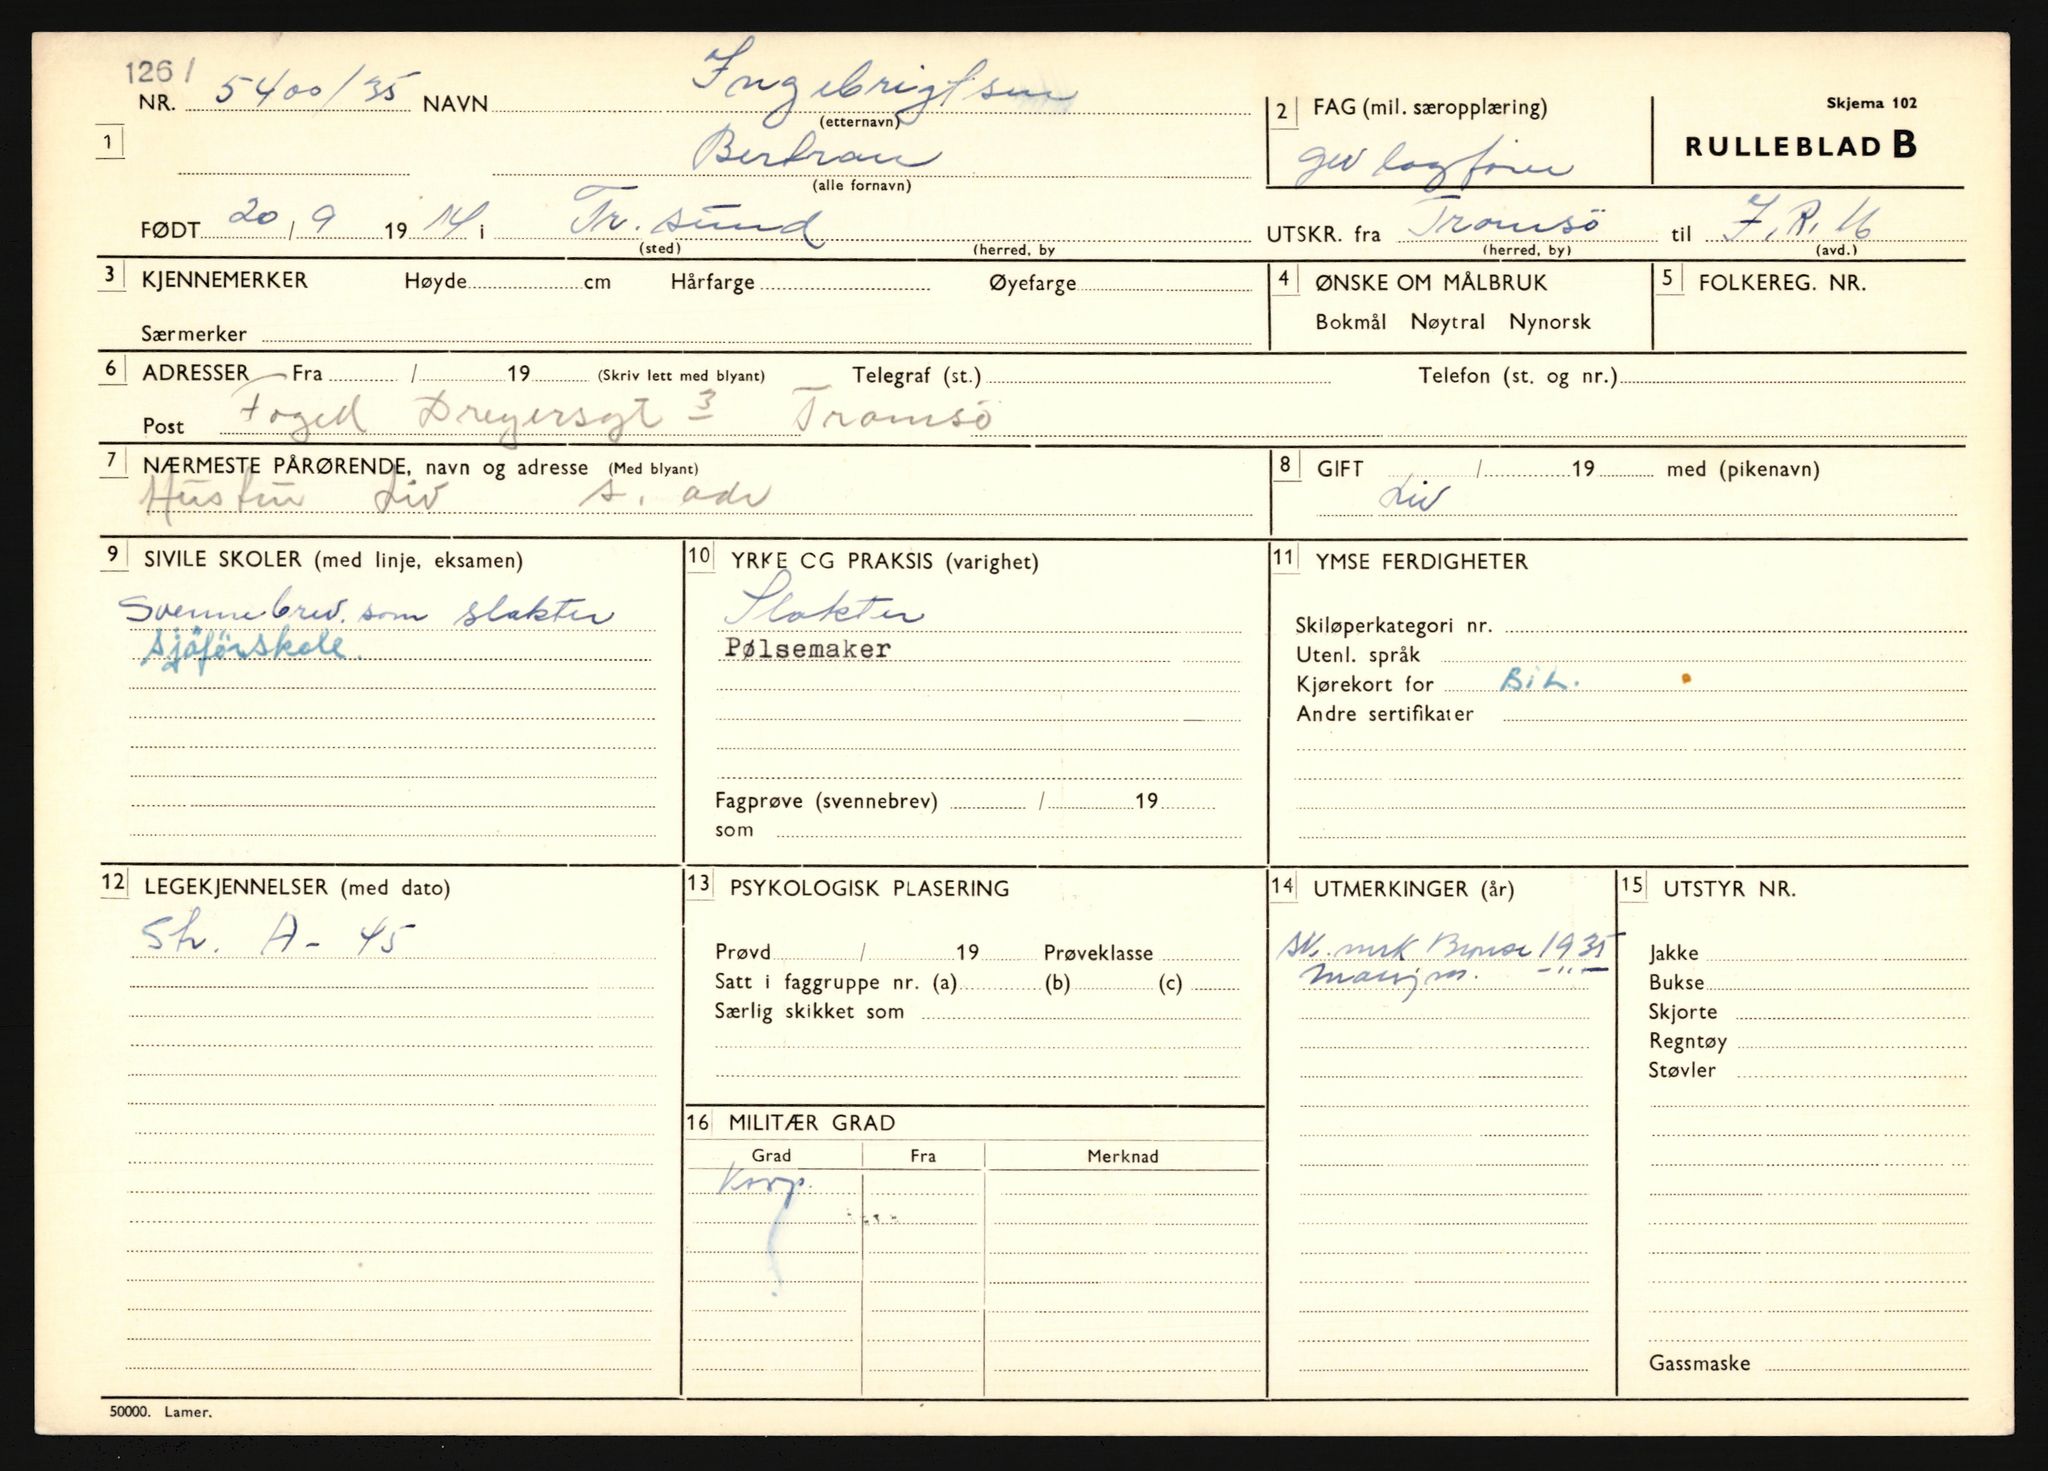 126/
NR. 5400/35 NAVN Ingebrigtsen
(etternavn)
1 Bertran
(alle fornavn)
FØDT 20/9 1914 i Tr.sund
(sted) (herred, by
2 FAG (mil. særopplæring)
gev lagfører
Skjema 102
RULLEBLAD B
UTSKR. fra Tromsö til I.R.16
(herred, by) (avd.)
3 KJENNEMERKER Høyde cm Hårfarge Øyefarge
Særmerker
4 ØNSKE OM MÅLBRUK
Bokmål Nøytral Nynorsk
5 FOLKEREG. NR.
6 ADRESSER Fra / 19 (Skriv lett med blyant) Telegraf (st.) Telefon (st. og nr.)
Post Foged Dreyersgt 3 Tromsö
7 NÆRMESTE PÅRØRENDE, navn og adresse (Med blyant)
Hustru Liv s. adr
8 GIFT / 19 med (pikenavn)
Liv
9 SIVILE SKOLER (med linje, eksamen)
Svennebrev. som slakter
sjåførskole.
10 YRKE OG PRAKSIS (varighet)
Slakter
Pølsemaker
Fagprøve (svennebrev) / 19
som
11 YMSE FERDIGHETER
Skiløperkategori nr.
Utenl. språk
Kjørekort for Bil.
Andre sertifikater
12 LEGEKJENNELSER (med dato)
Str. A - 45
13 PSYKOLOGISK PLASERING
Prøvd / 19 Prøveklasse
Satt i faggruppe nr. (a) (b) (c)
Særlig skikket som
14 UTMERKINGER (år)
sk. mrk Bronse 1935
-"-
15 UTSTYR NR.
Jakke
Bukse
Skjorte
Regntøy
Støvler
Gassmaske
16 MILITÆR GRAD
Grad Fra Merknad
Korp.
50000. Lamer.